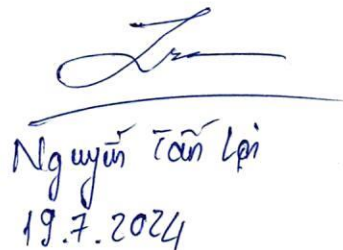 Nguyễn Tấn Lợi
19.7.2024